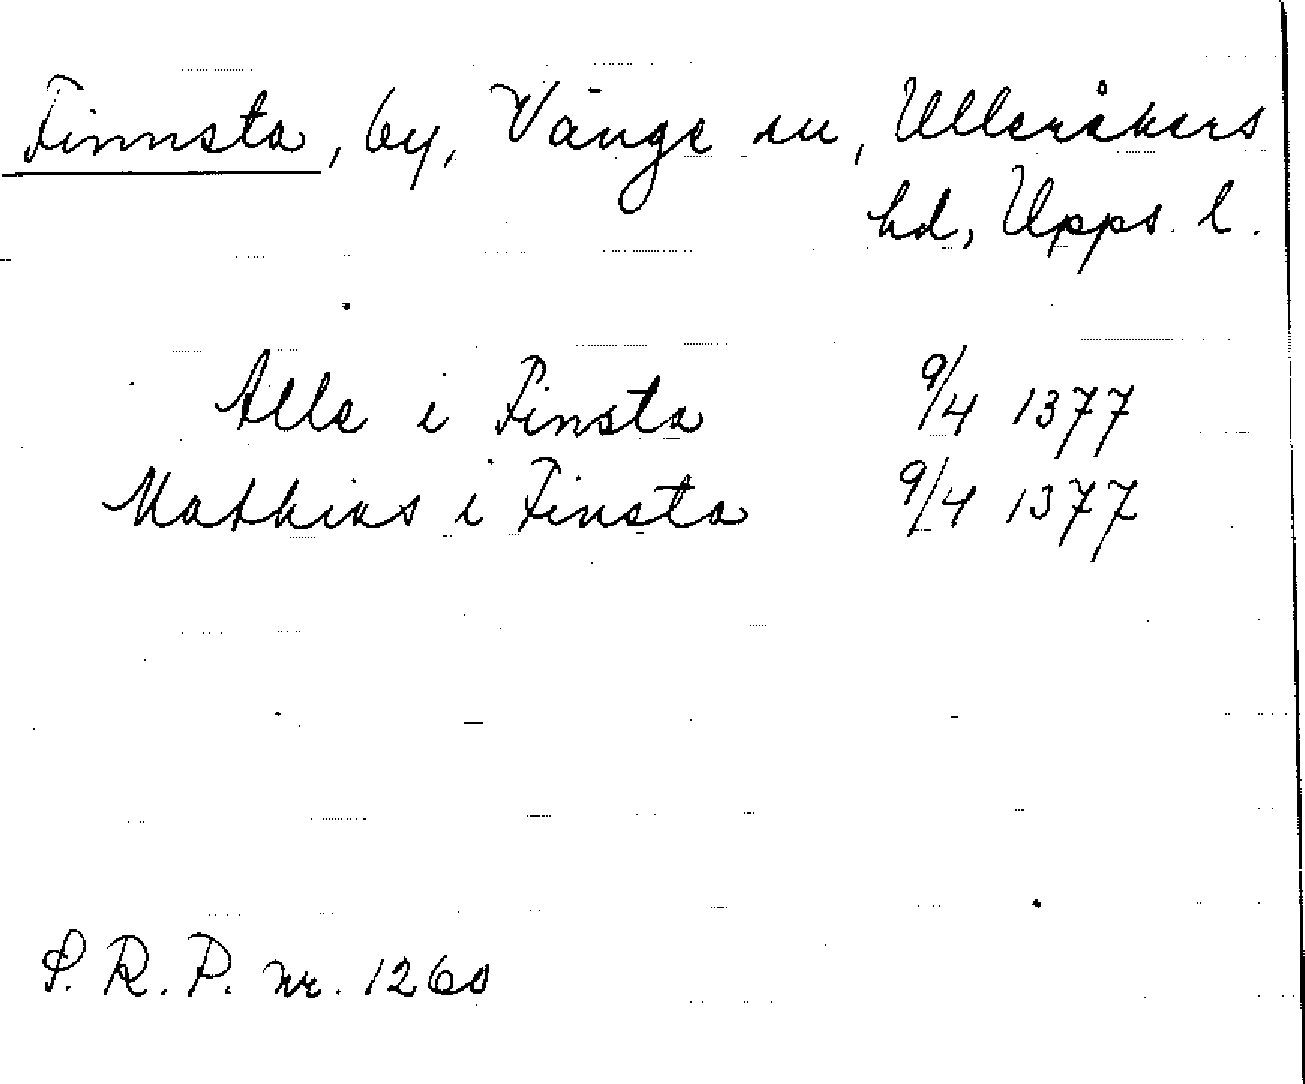 Finnsta, by, Vänge sn, Ulleråkers
hd, Upps. l.
Alle i Finsta 9/4 1377
Mathias i Finsta 9/4 1377
S. R. P. nr. 1260